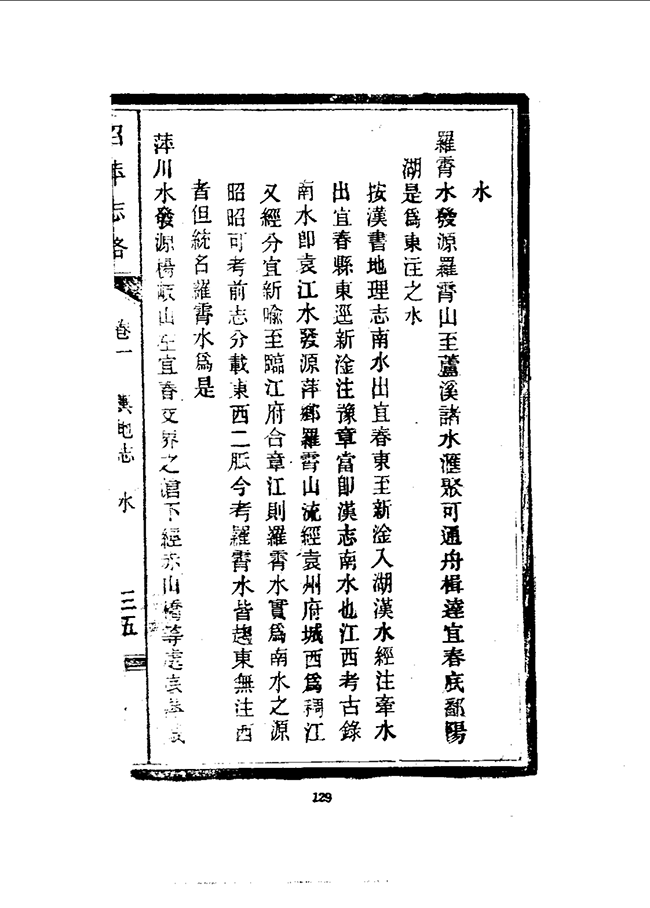 水
羅霄水發源羅霄山至蘆溪諸水滙聚可通舟楫達宜春底鄱陽
湖是爲東注之水
按漢書地理志南水出宜春東至新淦入湖漢水經注牽水
出宜春縣東逕新淦注豫章當卽漢志南水也江西考古錄
南水卽袁江水發源萍鄉羅霄山流經袁州府城西爲稠江
又經分宜新喻至臨江府合章江則羅霄水實爲南水之源
昭昭可考前志分載東西二胍今考羅霄水皆趨東無注西
者但統名羅霄水爲是
萍川水發源楊岐山在宜春交界之 下經赤山橋等處
昭萍志略
卷一
輿地志
水
三五
129